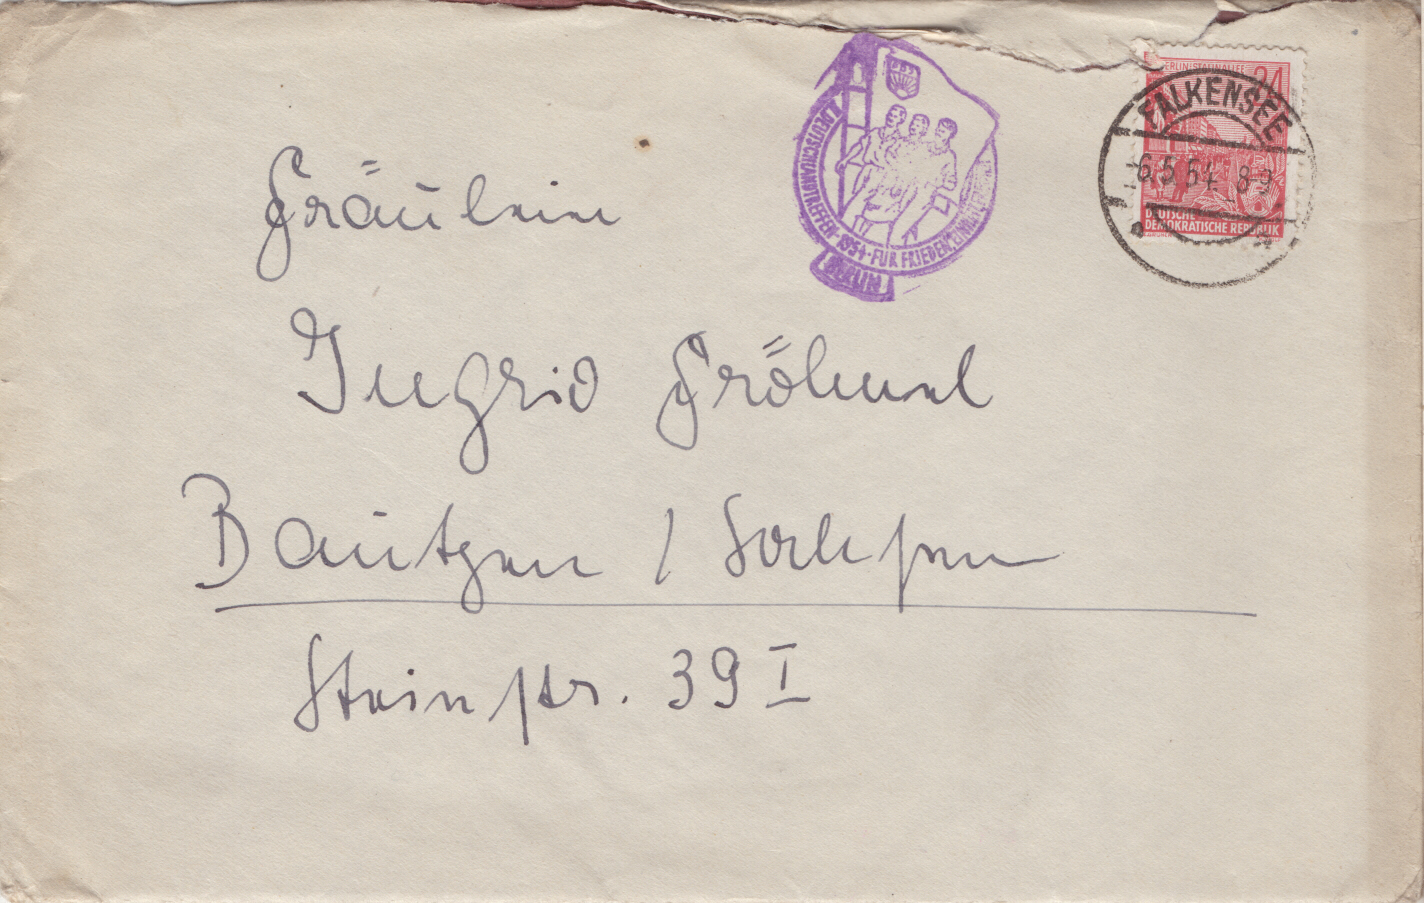 BERLIN STALINALLEE
24
FALKENSEE
-6.5.54 8-9
DEUTSCHE
DEMOKRATISCHE REPUBLIK
FDJ
II. DEUTSCHLANDTREFFEN · 1954 · FÜR FRIEDEN, EINHEIT
BERLIN
Fräulein
Ingrid Fröhmel
Bautzen / Sachsen
Steinstr. 39 I